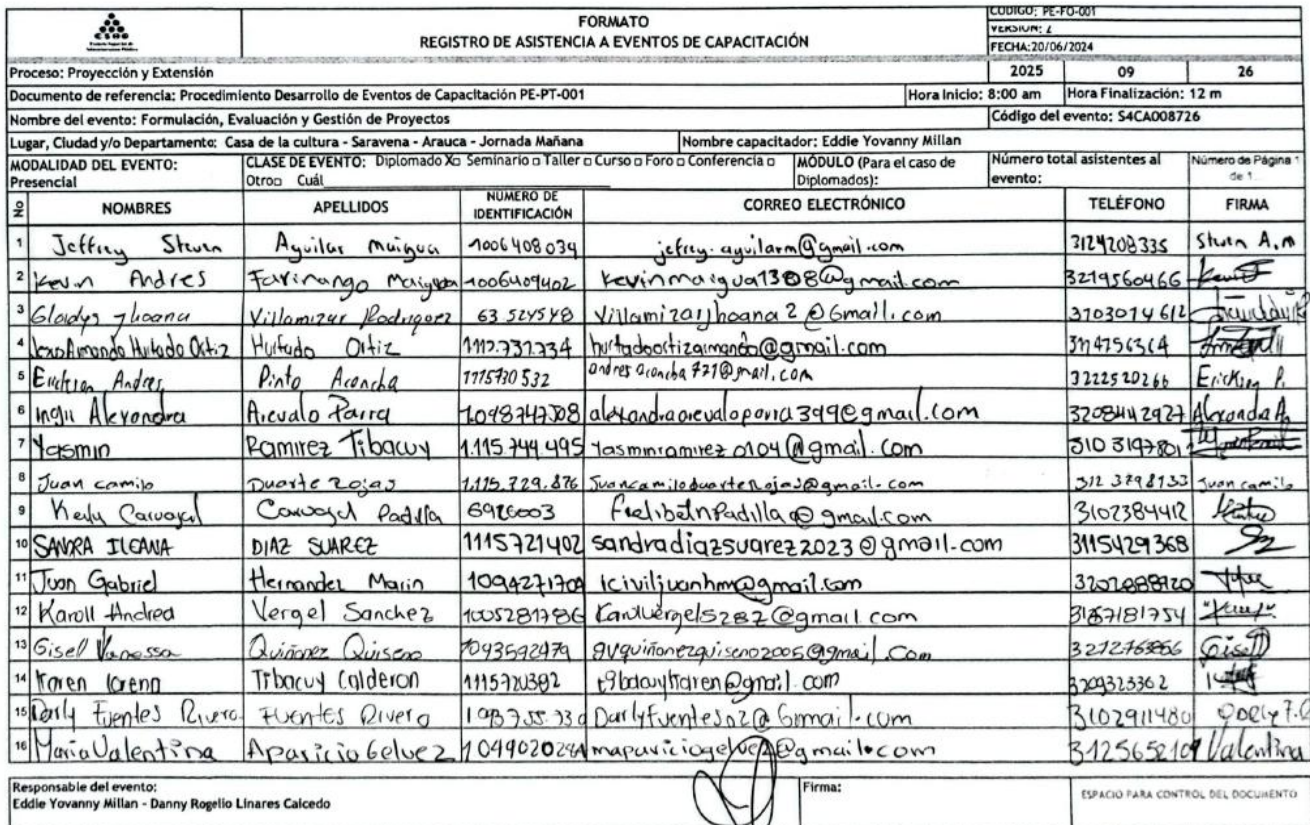 ESAP
FORMATO
REGISTRO DE ASISTENCIA A EVENTOS DE CAPACITACIÓN
CÓDIGO: PE-FO-001
VERSIÓN: 2
FECHA:20/06/2024
Proceso: Proyección y Extensión 2025 09 26
Documento de referencia: Procedimiento Desarrollo de Eventos de Capacitación PE-PT-001 Hora Inicio: 8:00 am Hora Finalización: 12 m
Nombre del evento: Formulación, Evaluación y Gestión de Proyectos Código del evento: S4CA008726
Lugar, Ciudad y/o Departamento: Casa de la cultura - Saravena - Arauca - Jornada Mañana Nombre capacitador: Eddie Yovanny Millan
MODALIDAD DEL EVENTO: Presencial
CLASE DE EVENTO: Diplomado X□ Seminario □ Taller □ Curso □ Foro □ Conferencia □
Otro□ Cuál
MÓDULO (Para el caso de Diplomados):
Número total asistentes al evento:
Número de Página 1 de 1
No NOMBRES APELLIDOS NÚMERO DE IDENTIFICACIÓN CORREO ELECTRÓNICO TELÉFONO FIRMA
1 Jeffrey Steven Aguilar Maigua 1006408034 jefrey.aguilarm@gmail.com 3124208335 Steven A.M
2 Kevin Andres Farinango Maigua 1006409402 kevinmaigua1308@gmail.com 3219560466
3 Gladys Jhoana Villamizar Rodriguez 63 524548 Villamizarjhoana2@Gmail.com 3103014612
4 Armando Hurtado Ortiz Hurtado Ortiz 1112.731.734 hurtadoortizarmando@gmail.com 314756364
5 Erickson Andres Pinto Aconcha 1115730532 andresaconcha721@gmail.com 3222520266 Erickson P.
6 Ingri Alexandra Arevalo Parra 1.098747308 alexandraarevaloparra399@gmail.com 3208442927 Alexandra A.
7 Yasmin Ramirez Tibacuy 1.115.744.495 Yasminramirez0104@gmail.com 310 3197801
8 Juan camilo Duarte Rojas 1.115.729.876 Juancamiloduarterojas@gmail.com 312 3798133 Juan camilo
9 Kelly Carvajal Carvajal Padilla 6926003 @gmail.com 3102384412
10 SANDRA ILEANA DIAZ SUAREZ 1115721402 sandradiazsuarez2023@gmail.com 3115429368
11 Juan Gabriel Hernandez Marin 1094271709 iciviljuanhm@gmail.com 3202888920
12 Karoll Andrea Vergel Sanchez 1005281786 3187181754
13 Gisell Vanessa Quiñonez Quiseno 1093592979 gvquiñonezquiseno2005@gmail.com 3212763866 Gisell
14 Karen lorena Tibacuy Calderon 1115720392 t9bacuykaren@gmail.com 3209323362
15 Darly Fuentes Rivero Fuentes Rivero DarlyFuentes02@Gmail.com 3102911480
16 Maria Valentina Aparicio Gelvez 1049020284 mapariciogelvez@gmail.com 3125652109 Valentina
Responsable del evento:
Eddie Yovanny Millan - Danny Rogelio Linares Caicedo
Firma:
ESPACIO PARA CONTROL DEL DOCUMENTO